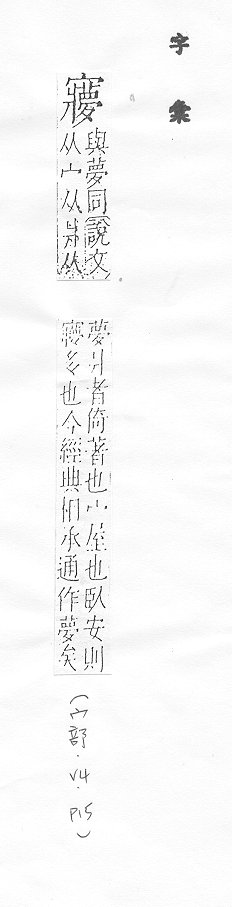 字彙
㝱
與夢同說文
从宀从爿从
夢爿者倚著也宀屋也臥安則
㝱多也今經典相承通作夢矣
(宀部.V4.P15)